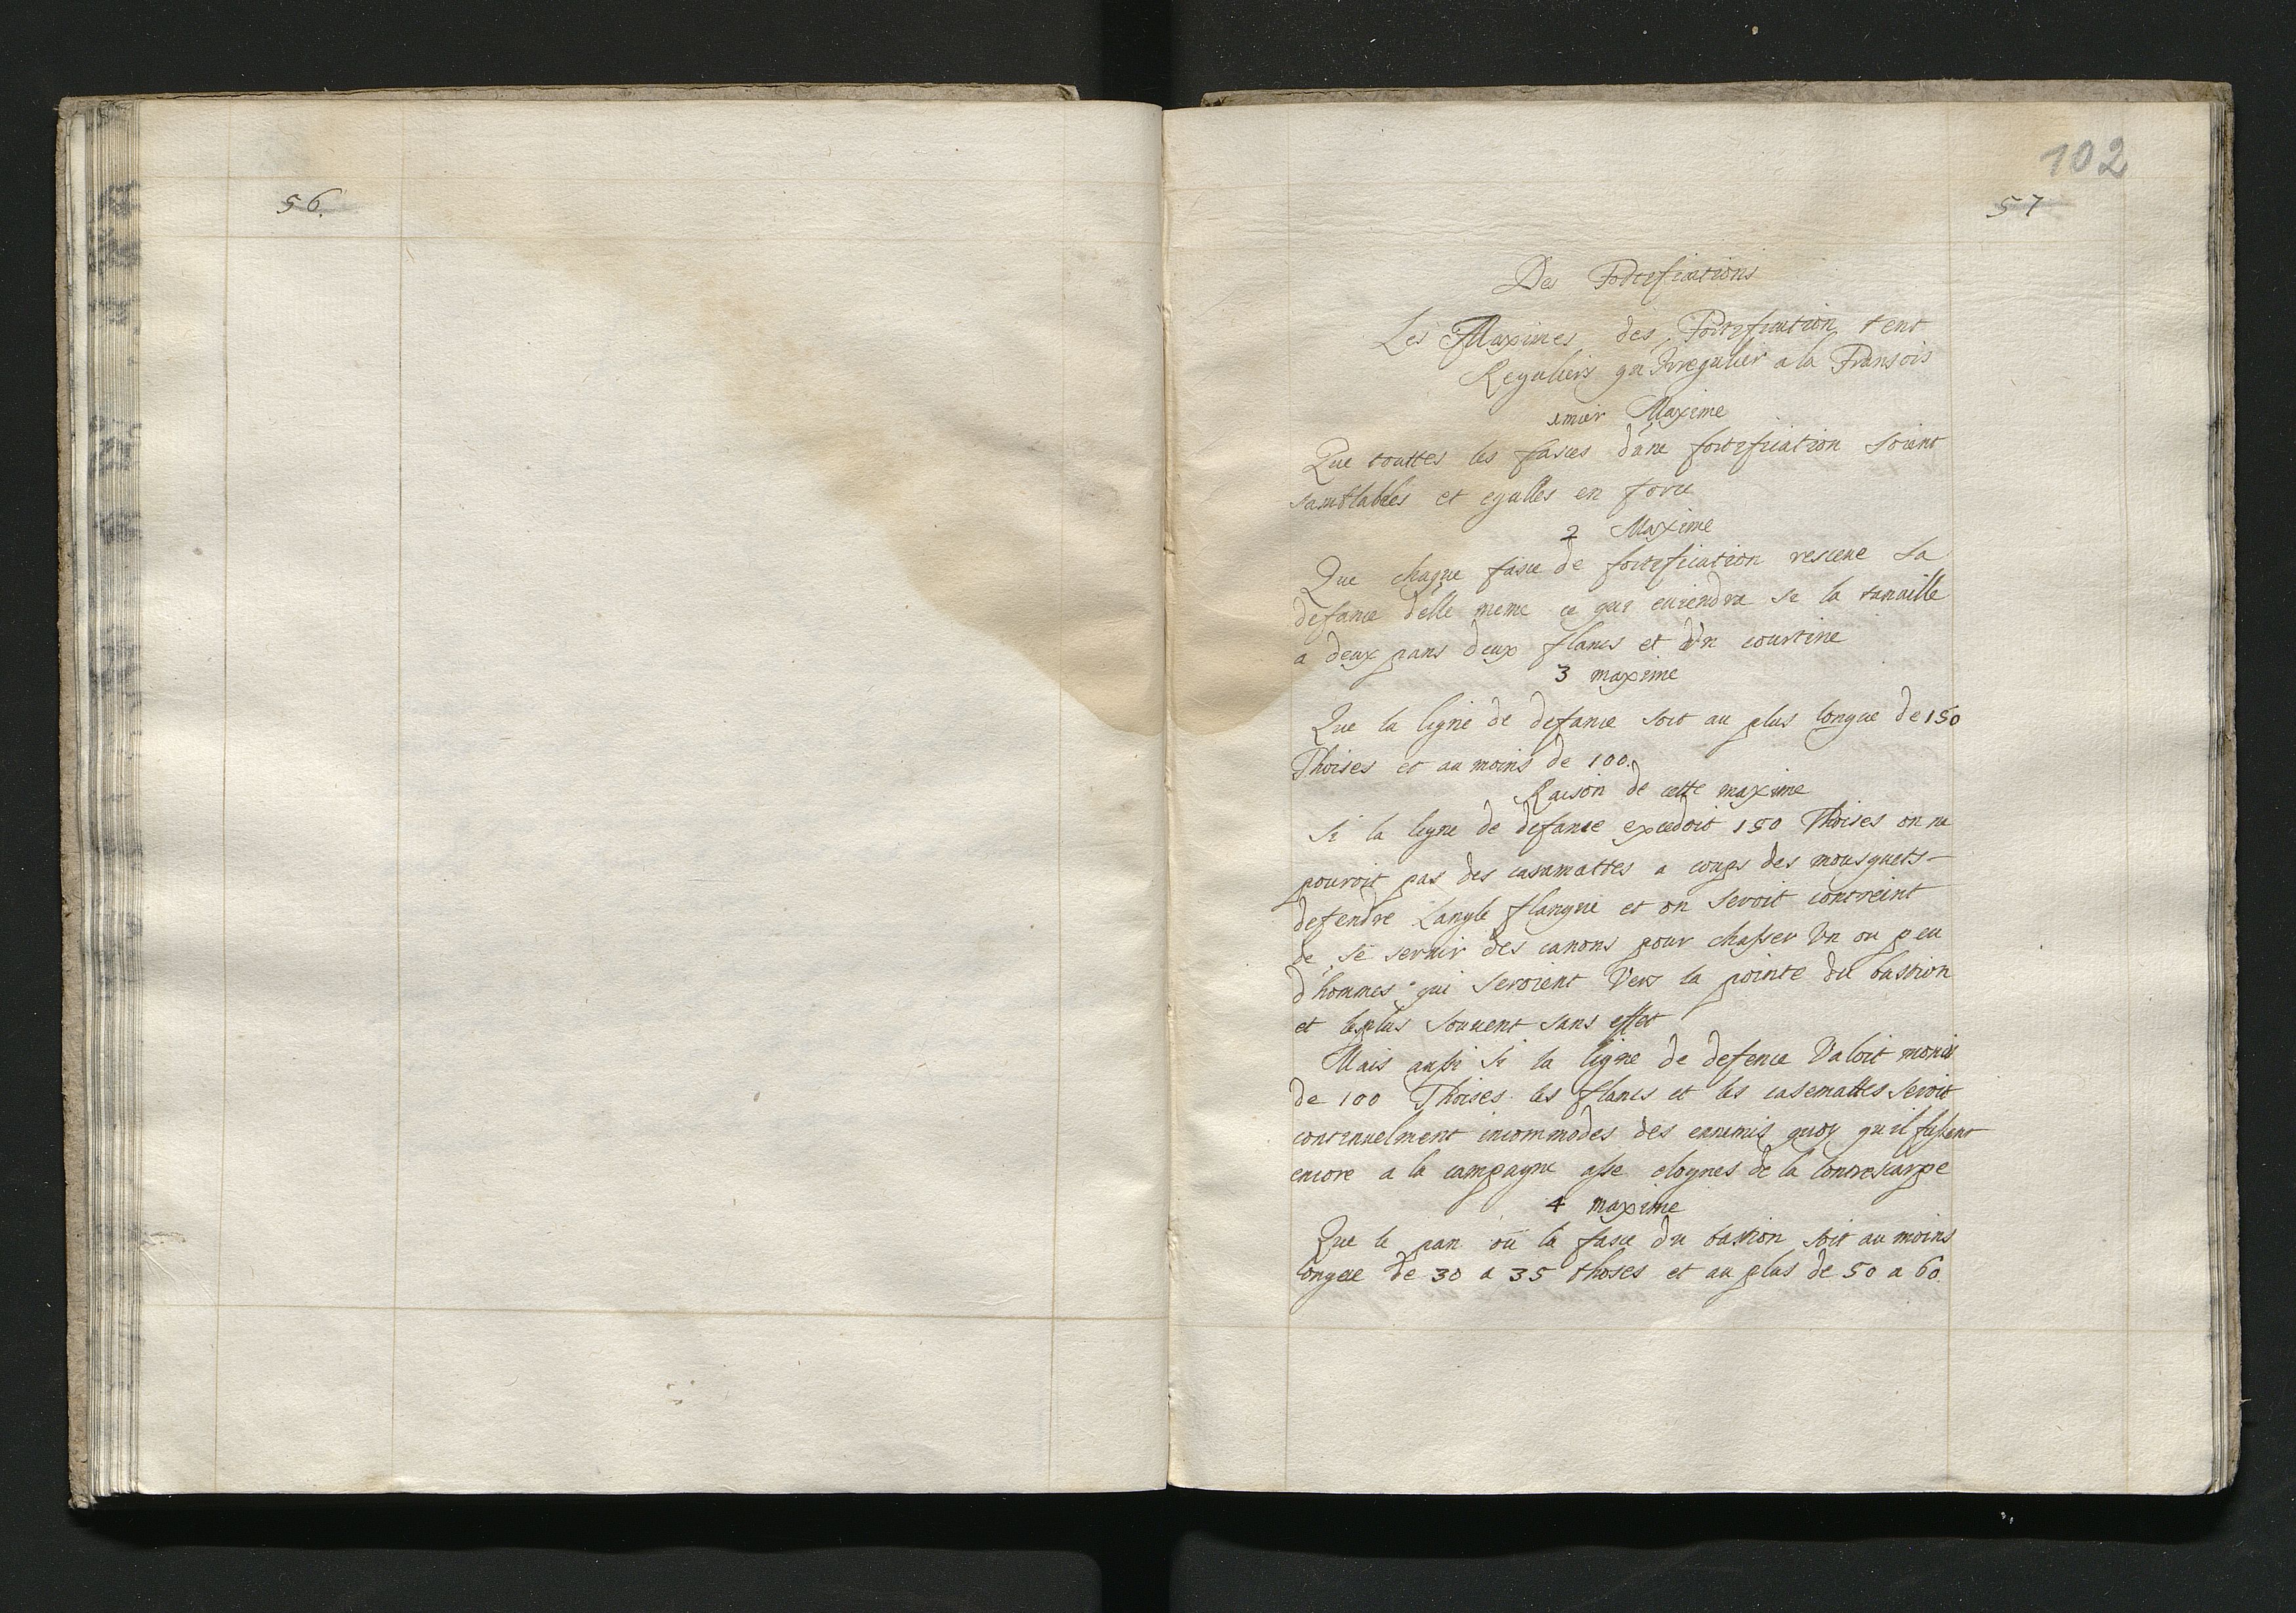 56.
102
57
Des Fortification̄s
Les Maximes des Fortification tent
Reguliers qu'Irregulier a la Fransois
1mier Maxime
Que touttes les fasces d'une fortification soient
samblables et egalles en force
2 Maxime
Que chaque fasce de fortification resceue sa
defance d'elle meme ce qui se la tanaille
a deux pans deux flancs et d'Vn courtine
3 maxime
Que la ligne de defance soit au plus longue de 150
Thoises et au moins de 100.
Raison de cette maxime
Si la ligne de defance excedoit 150 Thoises on ne
pouroit pas des casamattes a coups des mousquets
defendre L'angle flanqué et on seroit contreint
de se servir des canons pour chasser Vn ou peu
d'hommes qui seroient Vers la pointe du bastion
et leplus souuent sans effet
Mais aussi si la ligne de defence Valoit moins
de 100 Thoises les flancs et les casemattes seroit
continuelment incommodes des ennemis quoy qu'il fussent
encore a la campagne asse eloynes de la Contrescarpe
4 maxime
Que le pan ou la fasce du bastion soit au moins
longue de 30 a 35 thoses et au plus de 50 a 60